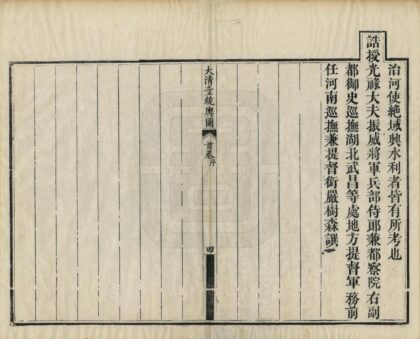 治河使絕域興水利者皆有所考也
誥授光祿大夫振威將軍兵部侍郎兼都察院右副
都御史巡撫湖北武昌等處地方提督軍務前
任河南巡撫兼提督銜嚴樹森譔
大清壹統輿圖
首卷序
四